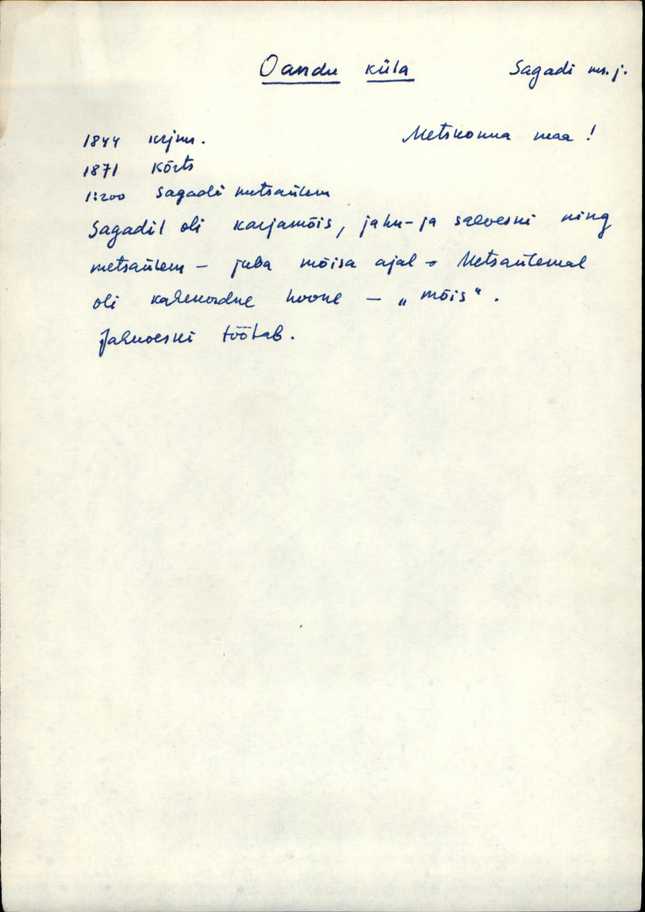 Oandu küla Sagadi ms. j.
1844 krjms. Metskonna maa!
1871 Kõrts
1:200 Sagadi metsaülem
Sagadil oli karjamõis, jahu- ja saeveski ning
metsaülem – juba mõisa ajal. Metsaülemal
oli kahekordne hoone – „mõis“.
Jahuveski töötab.